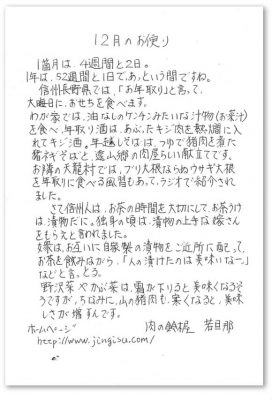 12月のお便り
1箇月は、4週間と2日。
1年は、52週間と1日で、あっという間ですね。
信州長野県では、「お年取り」と言って、
大晦日に、おせちを食べます。
わが家では、油なしのケンチンみたいな汁物(お菜汁)
を食べ、年取り酒は、あぶったキジ肉を熱燗に入
れてキジ酒。年越しそばは、つゆで猪肉を煮た
猪ネギそばと、遠山郷の肉屋らしい献立てです。
お隣の天龍村では、ブリ大根ならぬウサギ大根
を年取りに食べる風習もあって、ラジオで紹介されま
した。
さて信州人は、お茶の時間を大切にして、お茶うけ
は、漬物だに。独身の頃は、漬物の上手な嫁さん
をもらえと言われました。
嫁は、お互いに自家製の漬物をご近所に配って、
お茶を飲みながら、「人の漬けたのは美味いなー。」
などと言っとる。
野沢菜やかぶ菜は、霜が下りると美味くなるそ
うですが、ちなみに、山の猪肉も、寒くなると、美味
しさが増すんです。
ホームページ 肉の鈴木屋 若旦那
http://www.jingisu.com/